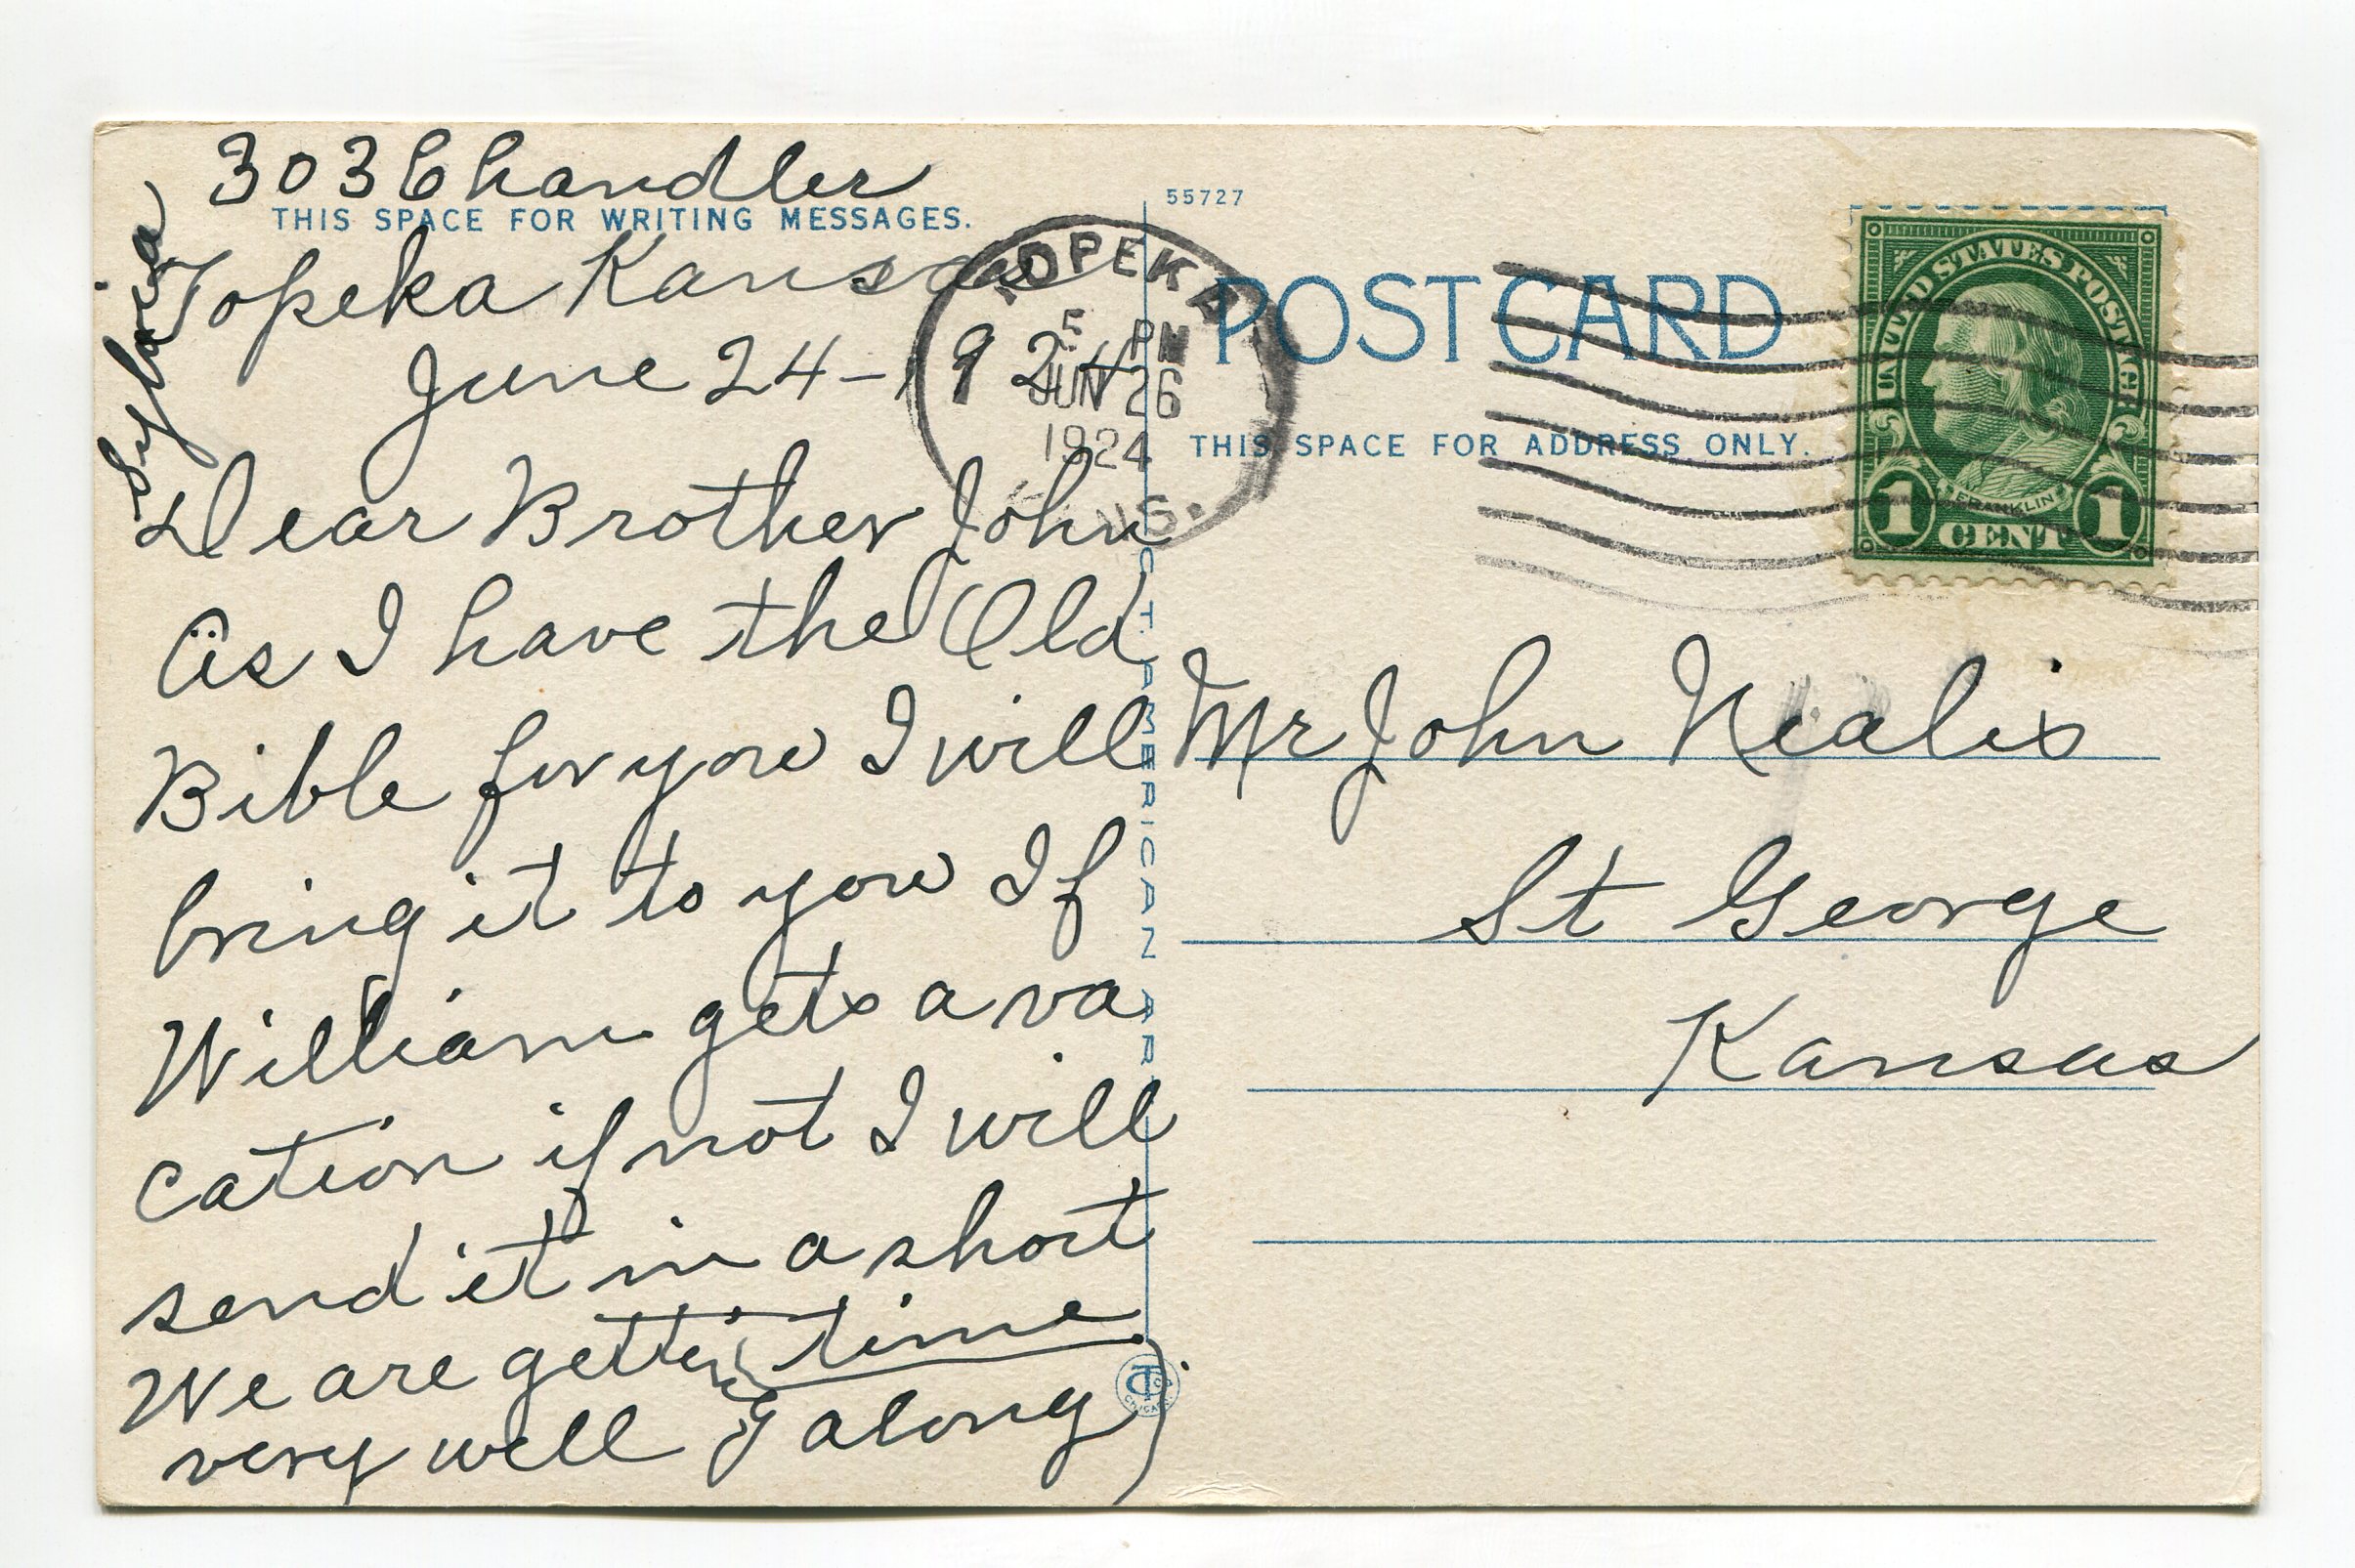 303 Chandler
THIS SPACE FOR WRITING MESSAGES.
Topeka Kansas
June 24-1924
Dear Brother John
As I have the Old
Bible for you I will
bring it to you If
William gets a va
cation if not I will
send it in a short
time
We are getting
very well along
Sylvania
55727
TOPEKA
PM
JUN 26
1924
KANS.
POST CARD
THIS SPACE FOR ADDRESS ONLY.
UNITED STATES POSTAGE
FRANKLIN
1 CENT 1
C. T. AMERICAN ART
Mr John Nealis
St George
Kansas
CT CO
CHICAGO